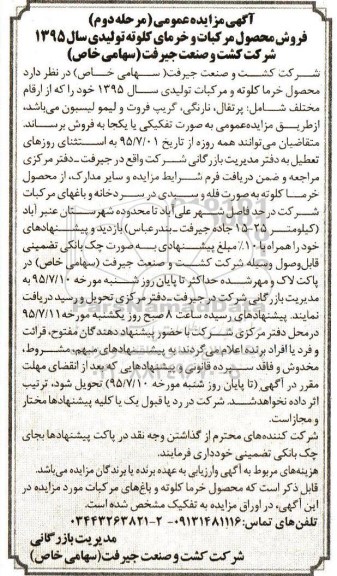 آگهی مزایده عمومی (مرحله دوم)
فروش محصول مرکبات و خرمای کلوته تولیدی سال ۱۳۹۵
شرکت کشت و صنعت جیرفت (سهامی خاص)
شرکت کشت و صنعت جیرفت( سهامی خاص) در نظر دارد
محصول خرما کلوته و مرکبات تولیدی سال ۱۳۹۵ خود را که از ارقام
مختلف شامل: پرتقال، نارنگی، گریپ فروت و لیمو لیسبون می‌باشد،
از طریق مزایده عمومی به صورت تفکیکی یا یکجا به فروش برساند.
متقاضیان می‌توانند همه روزه از تاریخ ۹۵/۷/۰۱ به استثنای روزهای
تعطیل به دفتر مدیریت بازرگانی شرکت واقع در جیرفت ـ دفتر مرکزی
مراجعه و ضمن دریافت فرم شرایط مزایده و سایر مدارک، از محصول
خرما کلوته به صورت فله و سبدی در سردخانه و باغهای مرکبات
شرکت در حد فاصل شهر علی آباد تا محدوده شهرستان عنبر آباد
(کیلومتر ۲۵-۱۵ جاده جیرفت ـ بندرعباس) بازدید و پیشنهادهای
خود را همراه با ۱۰٪ مبلغ پیشنهادی به صورت چک بانکی تضمینی
قابل وصول وسیله شرکت کشت و صنعت جیرفت (سهامی خاص) در
پاکت لاک و مهر شده حداکثر تا پایان روز شنبه مورخه ۹۵/۷/۱۰ به
مدیریت بازرگانی شرکت در جیرفت ـ دفتر مرکزی تحویل و رسید دریافت
نمایند. پیشنهادهای رسیده ساعت ۸ صبح روز یکشنبه مورخه ۹۵/۷/۱۱
در محل دفتر مرکزی شرکت با حضور پیشنهاد دهندگان مفتوح، قرائت
و فرد یا افراد برنده اعلام می‌گردند. به پیشنهادهای مبهم، مشروط،
مخدوش و فاقد سپرده قانونی و پیشنهادهایی که بعد از انقضای مهلت
مقرر در آگهی (تا پایان روز شنبه مورخه ۹۵/۷/۱۰) تحویل شود، ترتیب
اثر داده نخواهد شد. شرکت در رد یا قبول یک یا کلیه پیشنهادها مختار
و مجاز است.
شرکت کننده‌های محترم از گذاشتن وجه نقد در پاکت پیشنهادها بجای
چک بانکی تضمینی خودداری فرمایند.
هزینه‌های مربوط به آگهی وارزیابی به عهده برنده یا برندگان مزایده می‌باشد.
قابل ذکر است که محصول خرما کلوته و باغ‌های مرکبات مورد مزایده در
این آگهی، در اوراق مزایده به تفکیک مشخص شده است.
تلفن‌های تماس: ۰۹۱۳۱۴۸۱۱۱۶- ۲-۰۳۴۴۳۲۶۳۸۲۱
مدیریت بازرگانی
شرکت کشت و صنعت جیرفت (سهامی خاص)